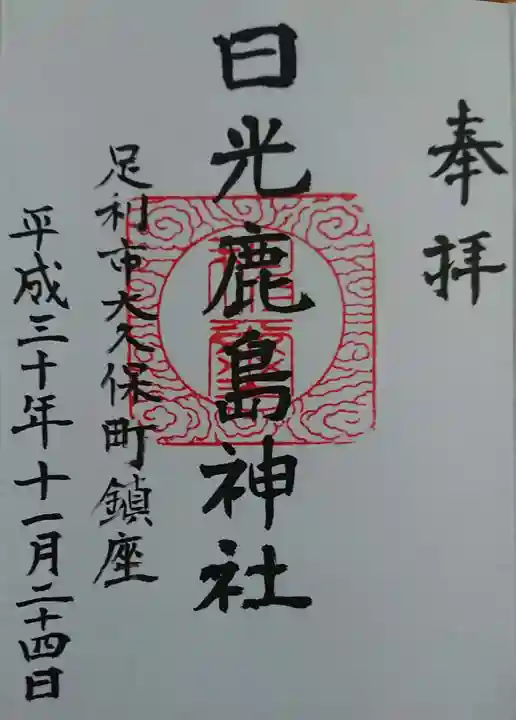 奉拝
日光鹿島神社
足利市大久保町鎮座
平成三十年十一月二十四日